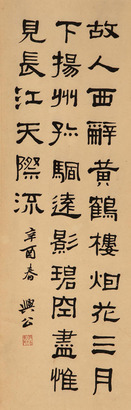 故人西辭黃鶴樓烟花三月
下揚州孤騆遠影碧空盡惟
見長江天際流
辛酉春
興公